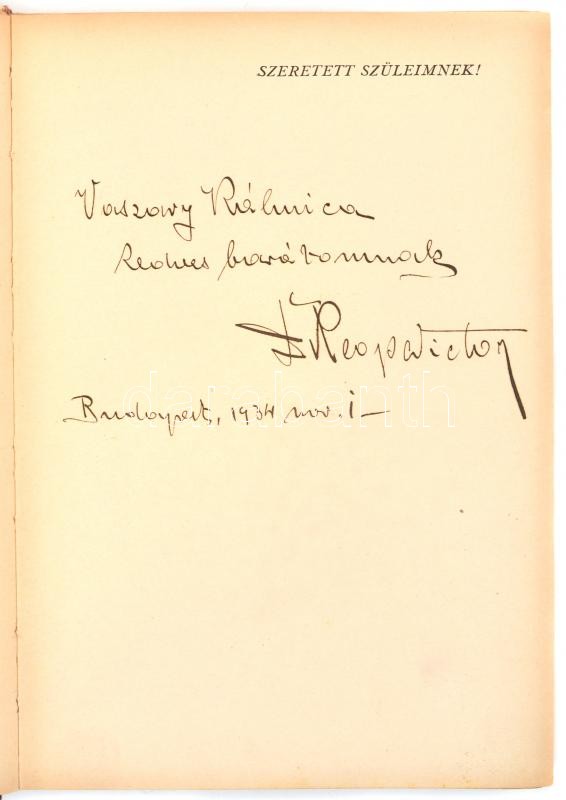 SZERETETT SZÜLEIMNEK!
Vaszary Kálmica
kedves barátomnak
Budapest, 1934 nov. 1–
darabanth